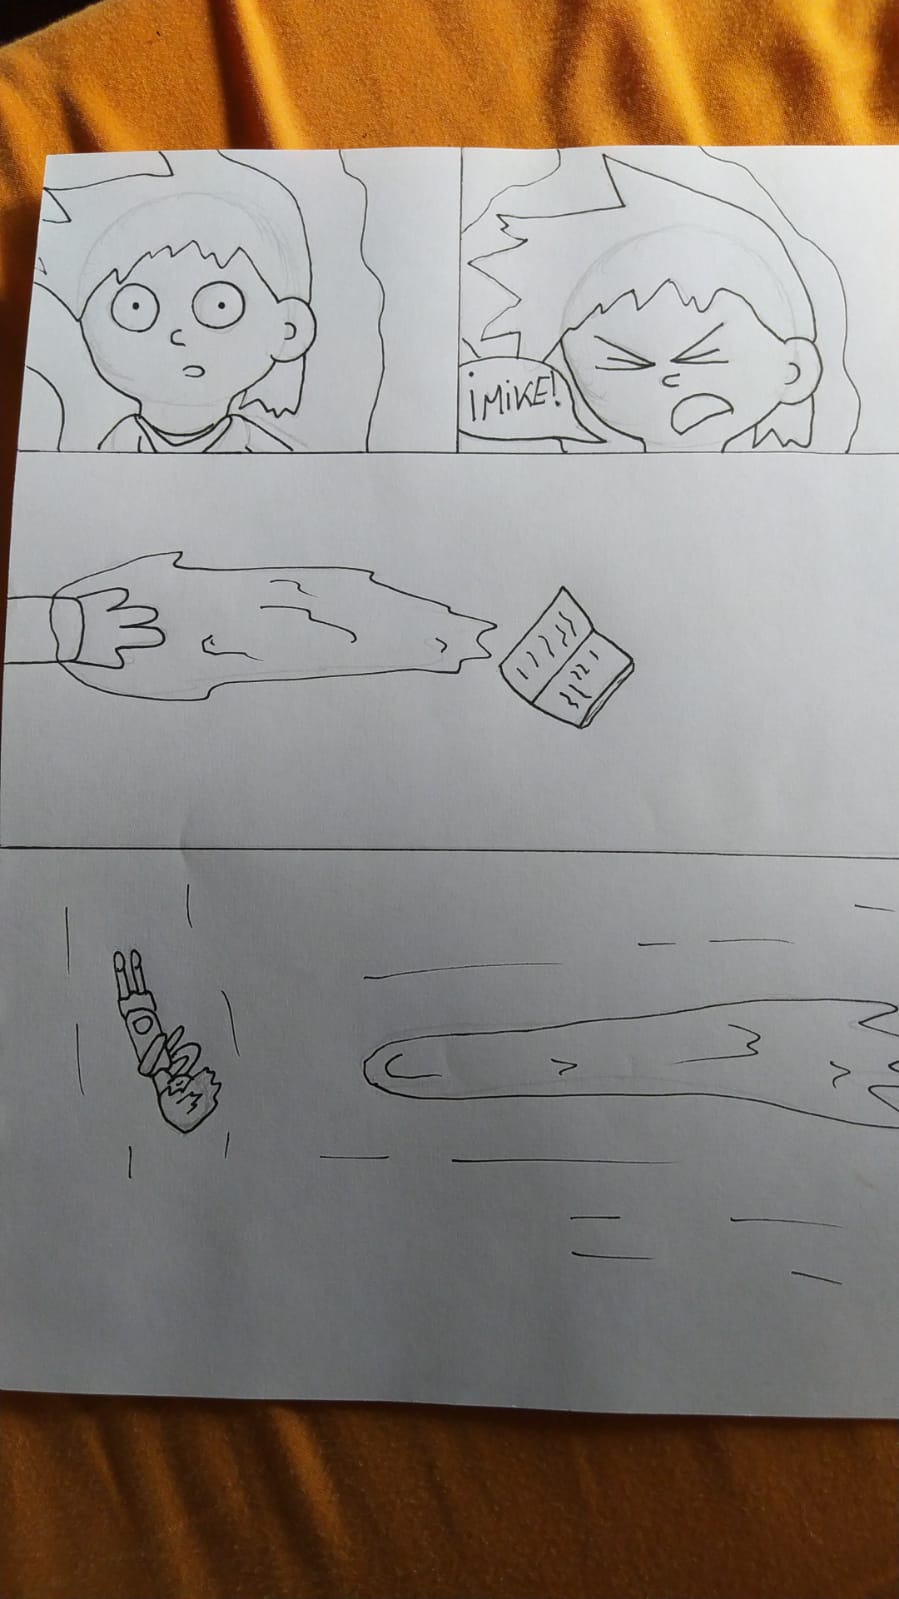 ¡MiKE!